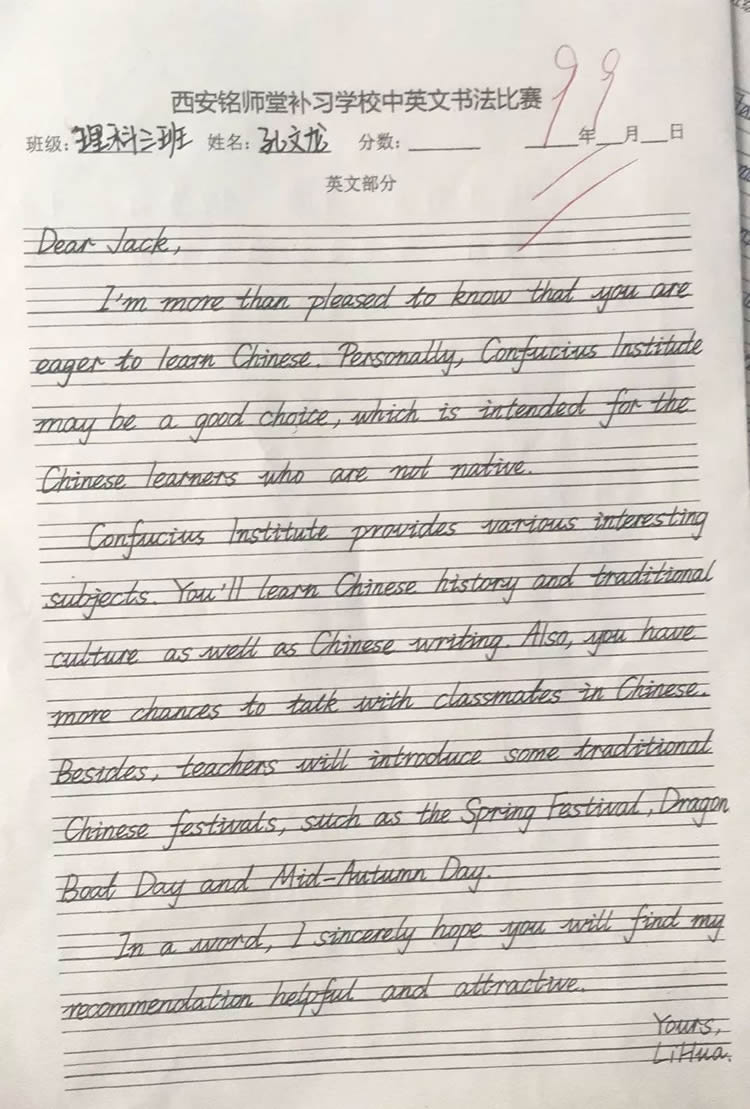 西安铭师堂补习学校中英文书法比赛
99
班级: 理科三班 姓名: 孔文龙 分数: ______ ____年__月__日
英文部分
Dear Jack,
I'm more than pleased to know that you are
eager to learn Chinese. Personally, Confucius Institute
may be a good choice, which is intended for the
Chinese learners who are not native.
Confucius Institute provides various interesting
subjects. You'll learn Chinese history and traditional
culture as well as Chinese writing. Also, you have
more chances to talk with classmates in Chinese.
Besides, teachers will introduce some traditional
Chinese festivals, such as the Spring Festival, Dragon
Boat Day and Mid-Autumn Day.
In a word, I sincerely hope you will find my
recommendation helpful and attractive.
Yours,
LiHua.